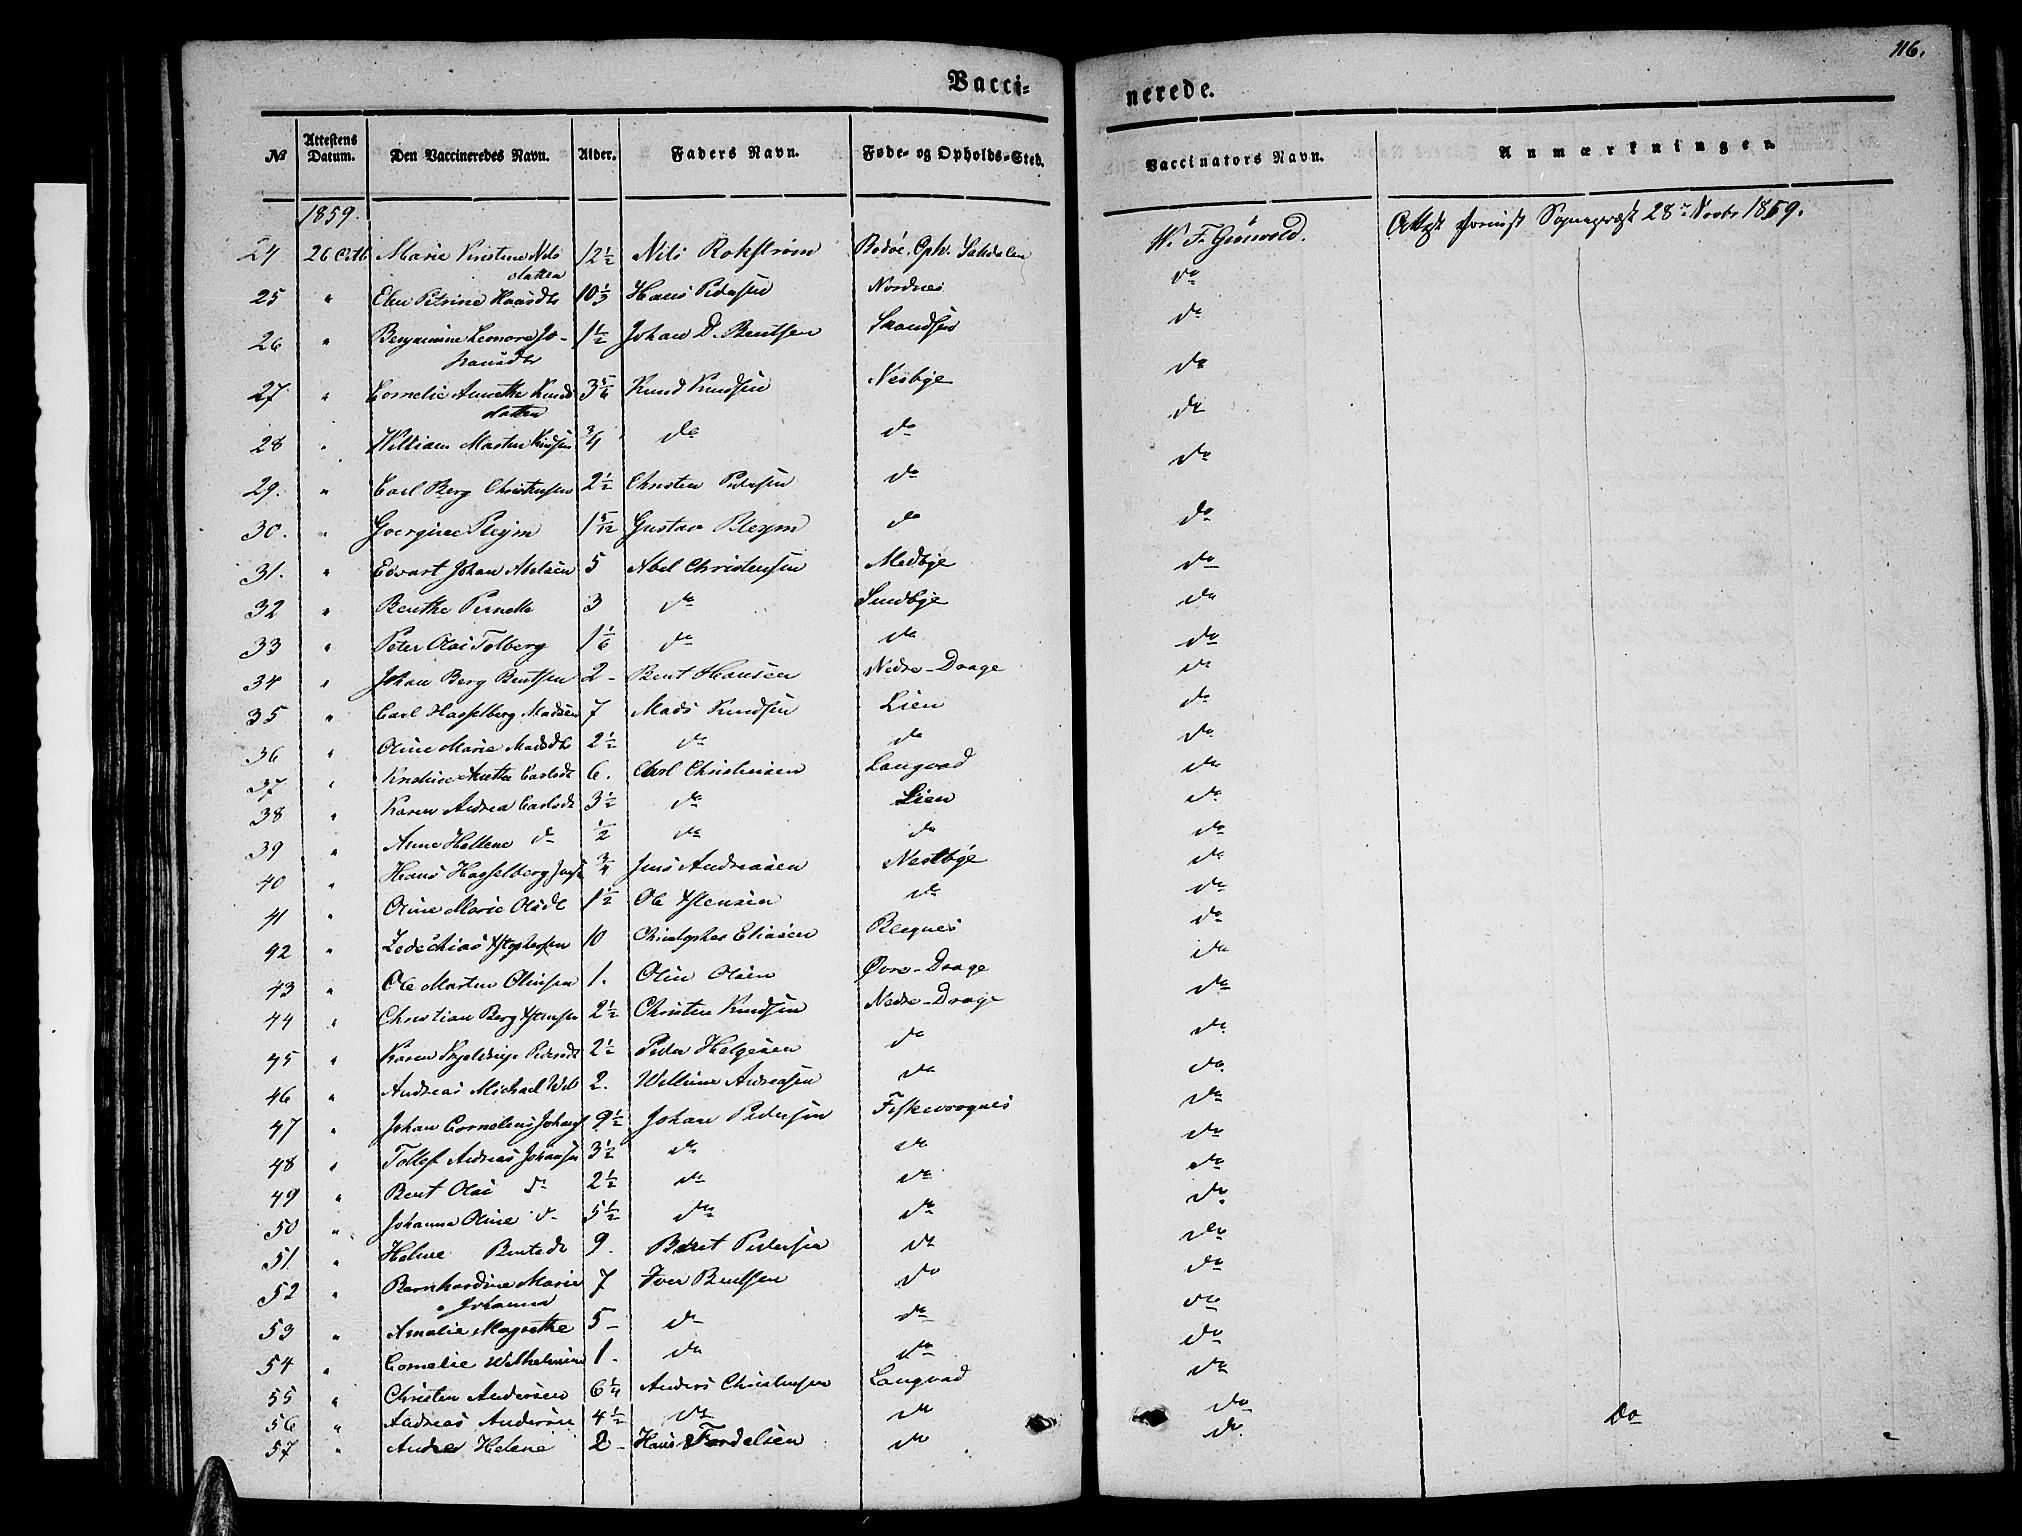 116.
Vacci=
nerede.
№ Attestens Datum. Den Vaccineredes Navn. Alder. Faders Navn. Føde- og Opholds-Sted. Vaccinators Navn. Anmærkninger.
1859.
24 26 Octb Marie Kirstine Nils datter 12½ Nils Rokstrøm Bodøe, Oph. Saltdalen W. F. Grönvold. Attest Sognepræst 28de Novbr 1859.
25 " Elen Petrine Hansdtr 10⅓ Hans Pedersen Nordnes do
26 " Benjamine Leonore Jo- hansdtr 1½ Johan D. Bentsen do
27. " Cornelie Annethe Knuds datter 3⅚ Knud Knudsen Nesbye do
28 " William Martin Knudsen ¾ do do do
29. " Carl Berg Christensen 2½ Christen Pedersen do do
30. " Goergine Pleym 1 5/12 Gustav Pleym do do
31. " Edvart Johan Abelsen 5 Abel Christensen Medbye do
32 " Benthe Pernelle 3 do Sundbye do
33 " Peter Olai Tolberg 1⅙ do do do
34 " Johan Berg Bentsen 2- Bent Hansen Nedre-Drage do
35 " Carl Hasselberg Madsen 7 Mads Knudsen Lien do
36 " Oline Marie Madsdtr 2½ do do do
37 " Kristine Anetta Carlsdt 6. Carl Christensen Langvad do
38 " Karen Andrea Carlsdt 3½ do Lien do
39 " Anne Hellene do ½ do do do
40 " Hans Hasselberg Jens ¾ Jens Andreasen Nestbye do
41 " Oline Marie Olsdt 1½ Ole do do
42 " Zedechias 10 Christopher Eliasen do
43 " Ole Martin Olinsen 1. Olin Olsen Øvre-Drage do
44 " Christian Berg 2½ Christen Knudsen Nedre-Drage do
45 " Karen Skjeldrup Pedersdt 2½ Peder Helgesen do do
46 " Andreas Michael Wil 2. Willum Andreasen do do
47 " Johan Cornelius Johans 9½ Johan Pedersen Fiskevaagnes do
48 " Tollef Andreas Johansen 3½ do do do
49 " Bent Olai do 2½ do do do
50 " Johanna Oline do 5½ do do do
51 " Helene Bentsdt 9. Bent Pedersen do do
52 " Bernhardine Marie Johanna 7 Iver Bentsen do do
53 " Amalie Magrethe 5- do do do
54 " Cornelie Wilhelmine 1. do do do
55 " Christen Andersen 6¼ Anders Christensen Langvad do
56 " Andreas Andersen 4½ do do do Do
57 " Andrea Helene 2- Hans do do